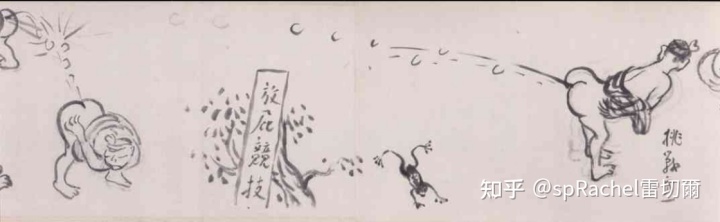 放屁競技
挑戦
知乎 @spRachel雷切爾